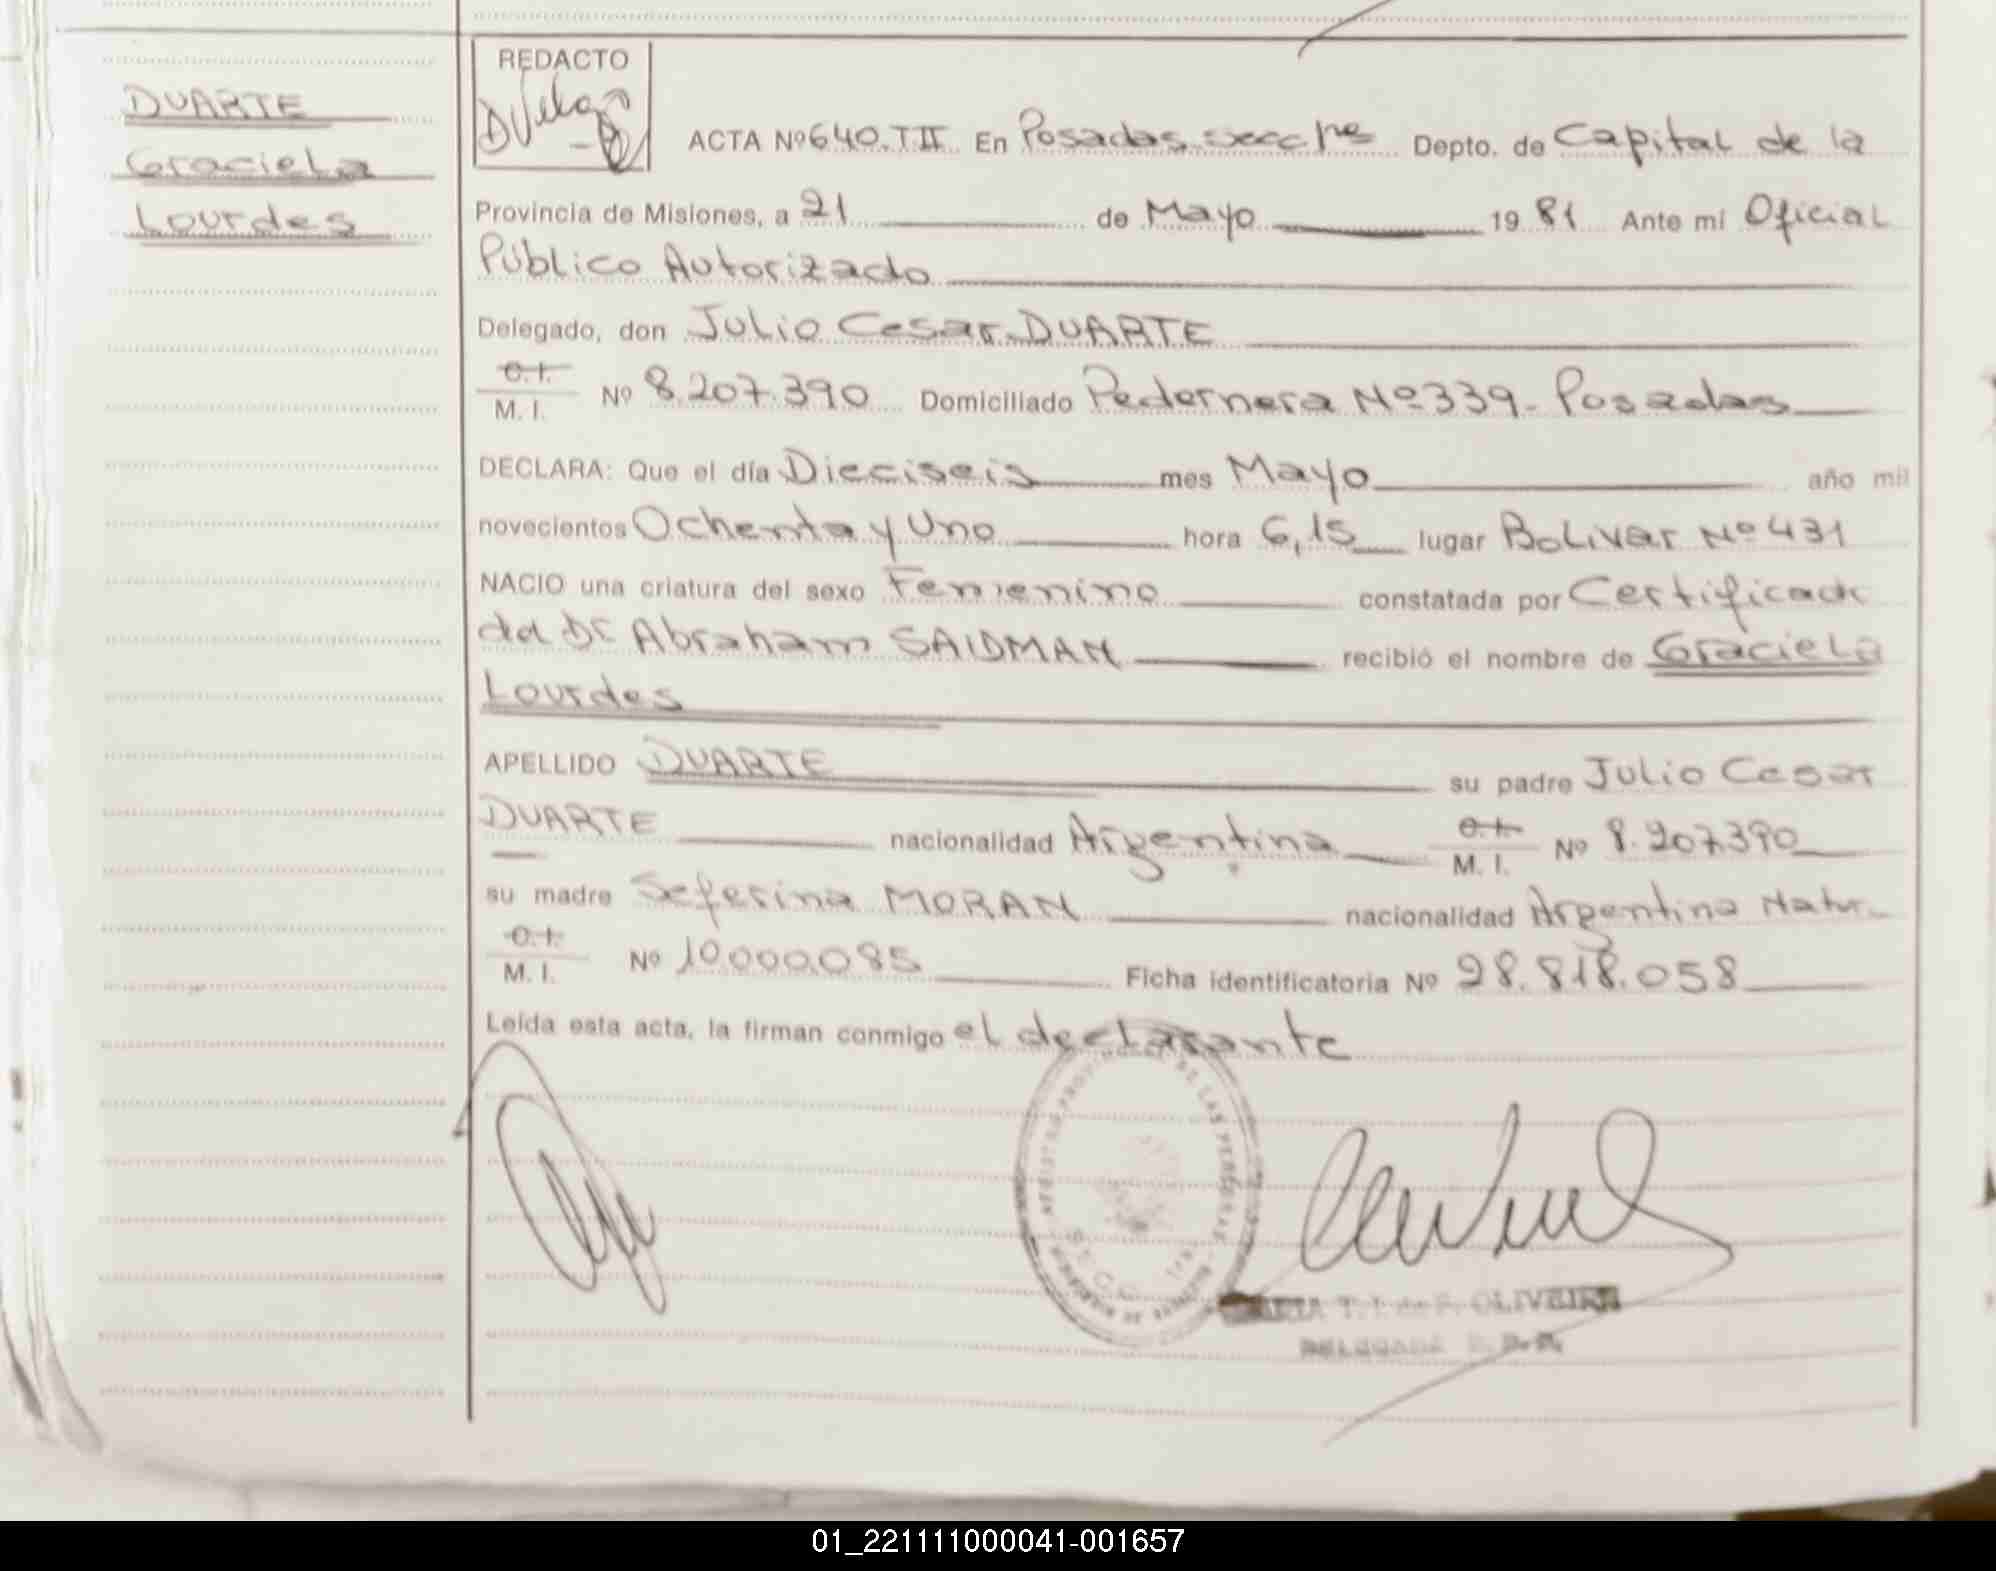 DUARTE
Graciela
Lourdes
REDACTO
ACTA Nº 640.TII En Posadas secc 1ra Depto. de Capital de la
Provincia de Misiones, a 21 de Mayo 19 81 Ante mí Oficial
Público Autorizado
Delegado, don Julio Cesar DUARTE
C. I.
M. I. Nº 8.207.390 Domiciliado Pedernera Nº 339 - Posadas
DECLARA: Que el día Dieciseis mes Mayo año mil
novecientos Ochenta y Uno hora 6,15 lugar Bolivar Nº 431
NACIO una criatura del sexo Femenino constatada por Certificado
del Dr Abraham SAIDMAN recibió el nombre de Graciela
Lourdes
APELLIDO DUARTE su padre Julio Cesar
DUARTE nacionalidad Argentina C. I. M. I. Nº 8.207.390
su madre Seferina MORAN nacionalidad Argentina Natur.
C. I.
M. I. Nº 10.000.085 Ficha identificatoria Nº 28.818.058
Leída esta acta, la firman conmigo el declarante
DE LAS PERSONAS
T. I. de F. OLIVEIRA
01_221111000041-001657